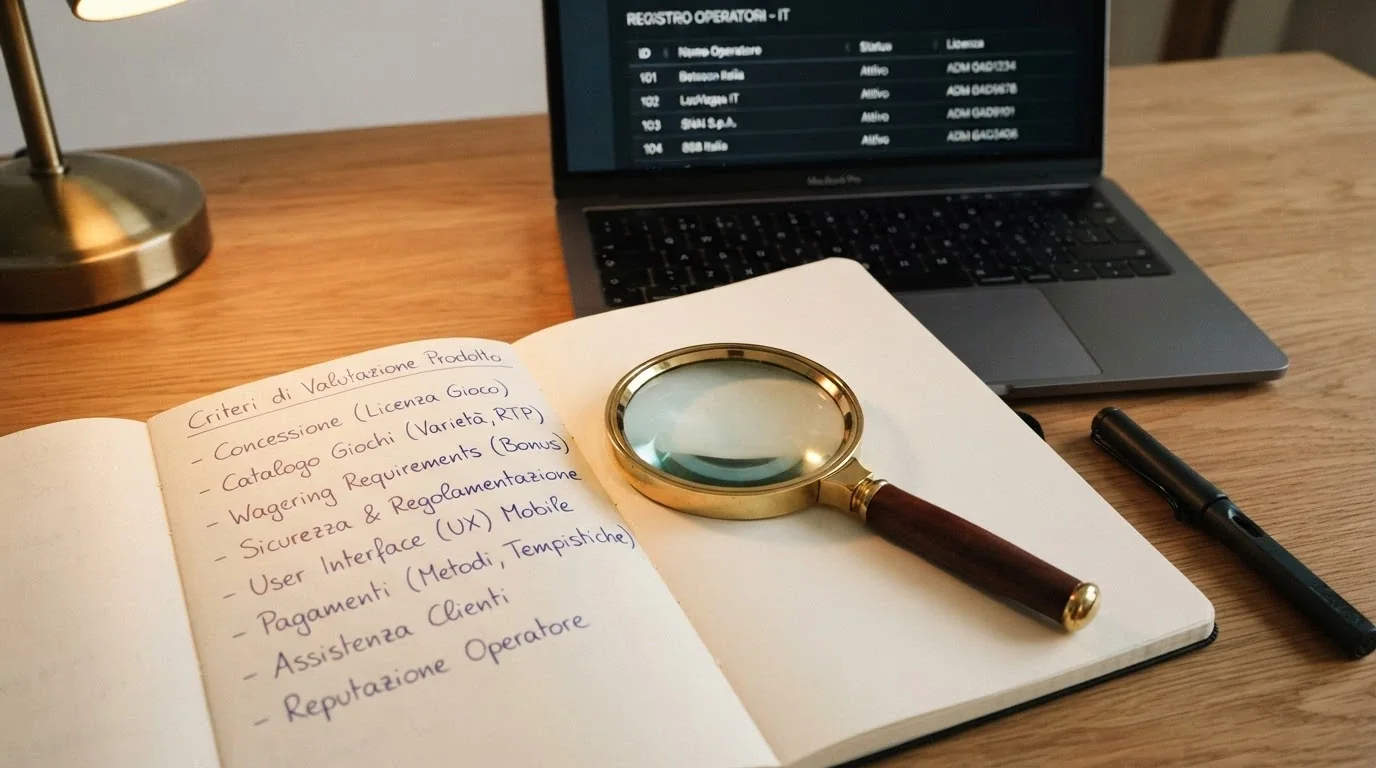 REGISTRO OPERATORI - IT
ID Nome Operatore Status Licenza
101 Italia Attivo ADM GAD1234
102 LeoVegas IT Attivo ADM GAD5678
103 S.p.A. Attivo ADM GAD9101
104 888 Italia Attivo ADM
MacBook Pro
Criteri di Valutazione Prodotto
- Concessione (Licenza Gioco)
- Catalogo Giochi (Varietà, RTP)
- Wagering Requirements (Bonus)
- Sicurezza & Regolamentazione
- User Interface (UX) Mobile
- Pagamenti (Metodi, Tempistiche)
- Assistenza Clienti
- Reputazione Operatore